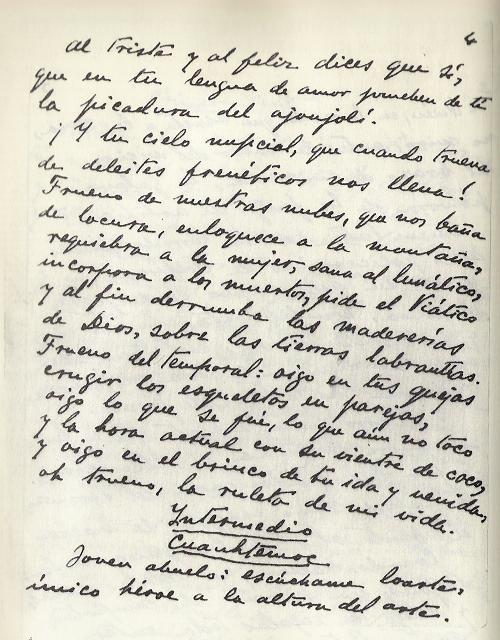 4
al triste y al feliz dices que sí,
que en tu lengua de amor prueben de ti
la picadura del ajonjolí.
¡Y tu cielo nupcial, que cuando truena
de deleites frenéticos nos llena!
Trueno de nuestras nubes, que nos baña
de locura, enloquece a la montaña,
requiebra a la mujer, sana al lunático,
incorpora a los muertos, pide el Viático
y al fin derrumba las madererías
de Dios, sobre las tierras labrantías.
Trueno del temporal: oigo en tus quejas
crugir los esqueletos en parejas,
oigo lo que se fué, lo que aún no toco
y la hora actual con su vientre de coco,
y oigo en el brinco de tu ida y venida,
oh trueno, la ruleta de mi vida.
Intermedio
Cuauhtémoc
Joven abuelo: escúchame loarte,
único héroe a la altura del arte.